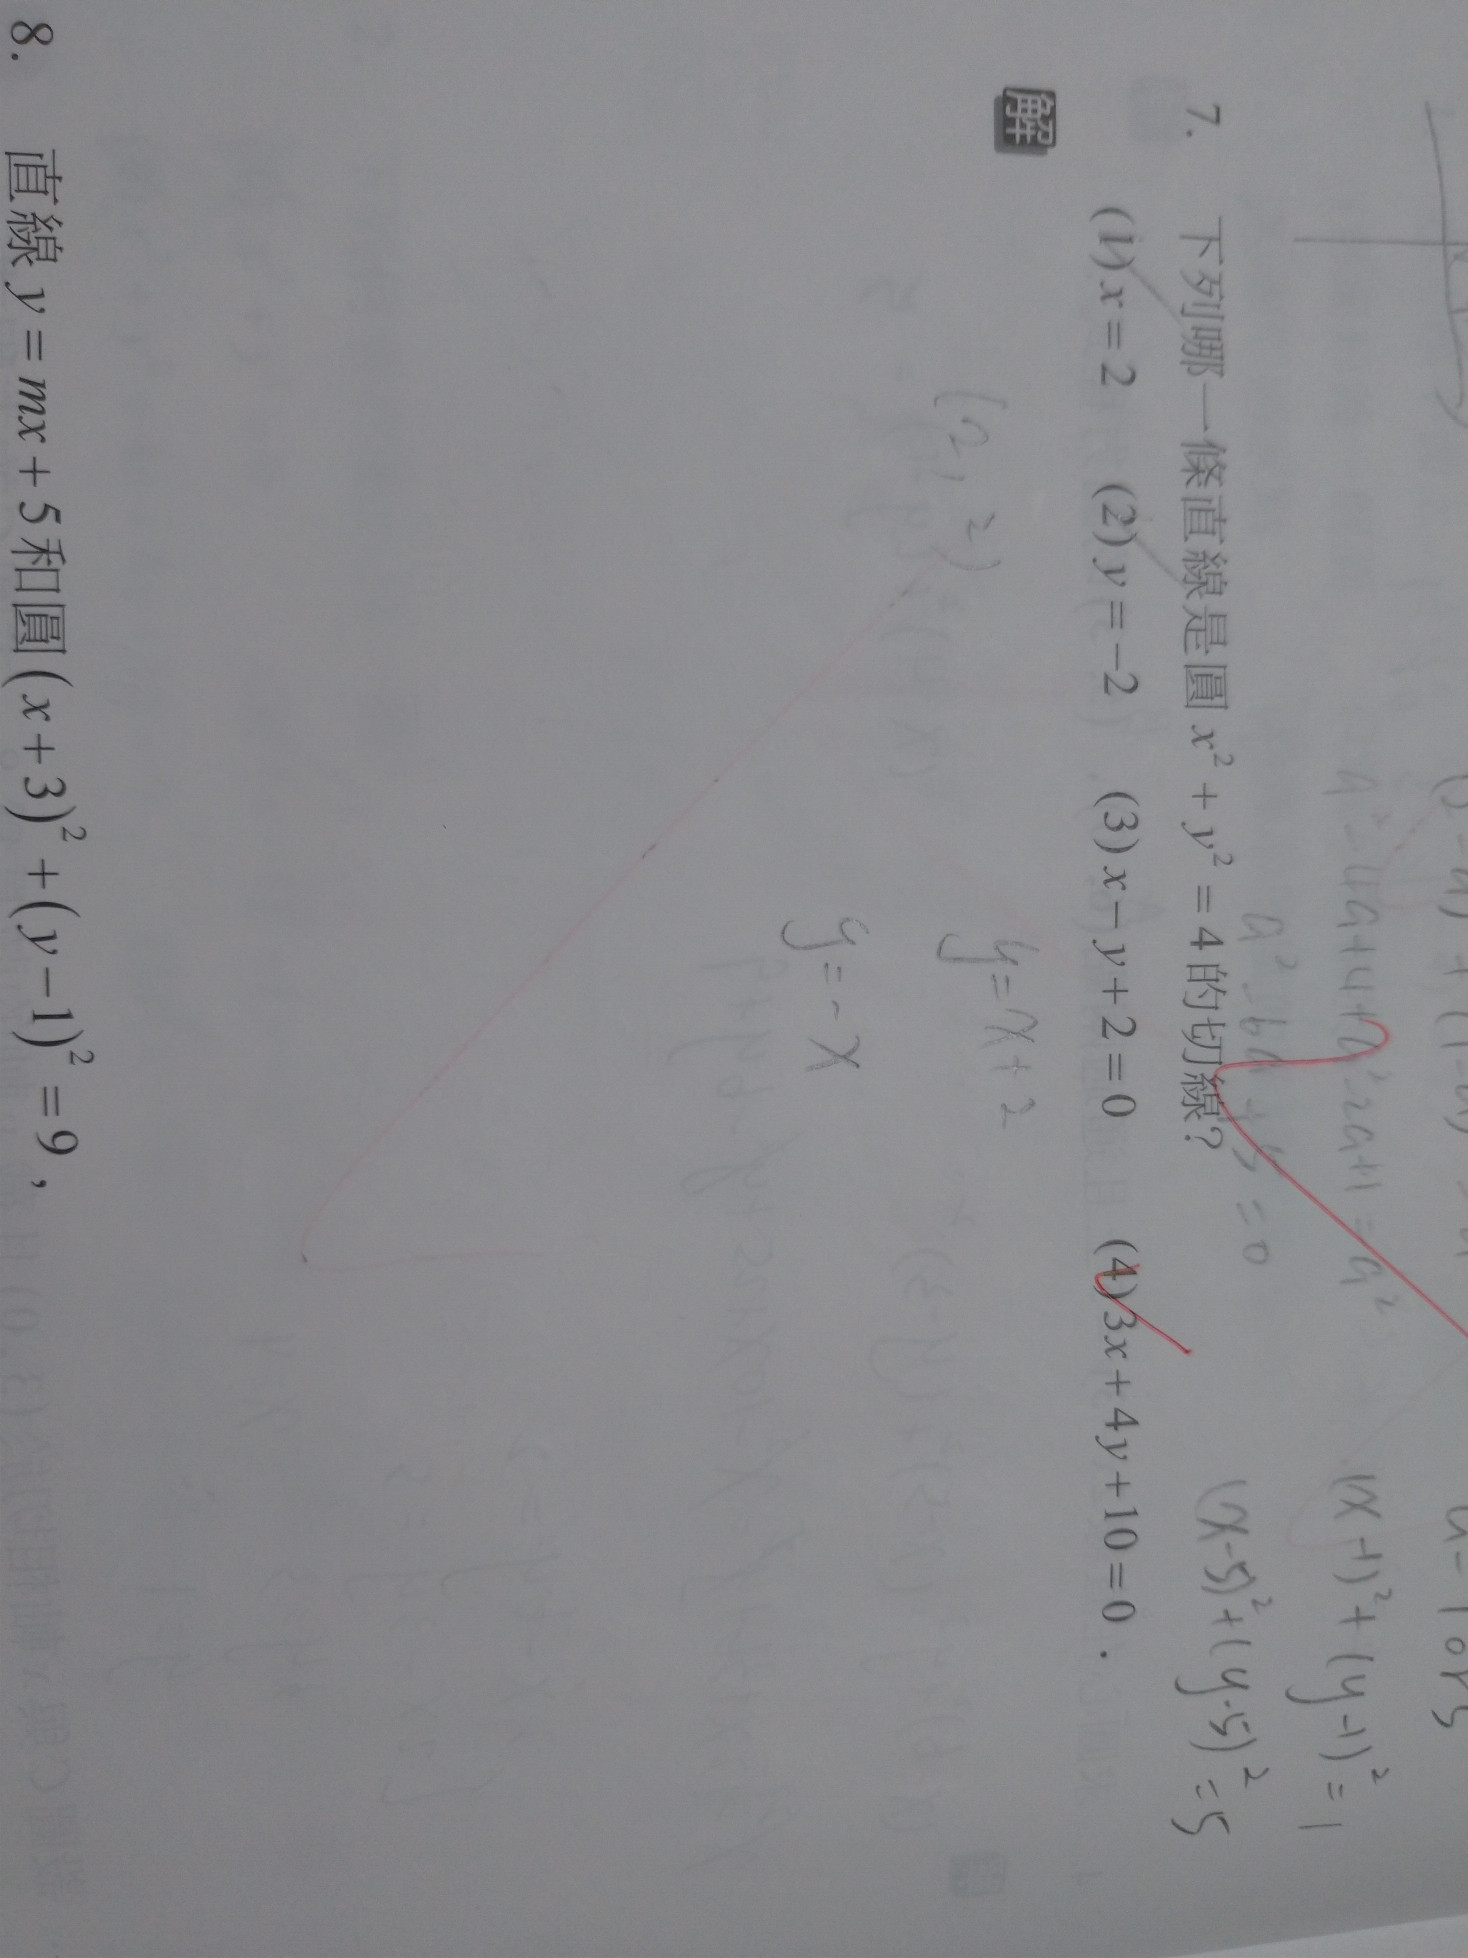 a²-4a+4+a²-2a+1=a²
(x-1)²+(y-1)²=1
a²-6a+5=0
(x-5)²+(y-5)²=5
7. 下列哪一條直線是圓 x² + y² = 4 的切線?
(1) x = 2 (2) y = -2 (3) x - y + 2 = 0 (4) 3x + 4y + 10 = 0 .
解
(2, 2)
y=x+2
y=-x
8. 直線 y = mx + 5 和圓 (x + 3)² + (y - 1)² = 9 ,